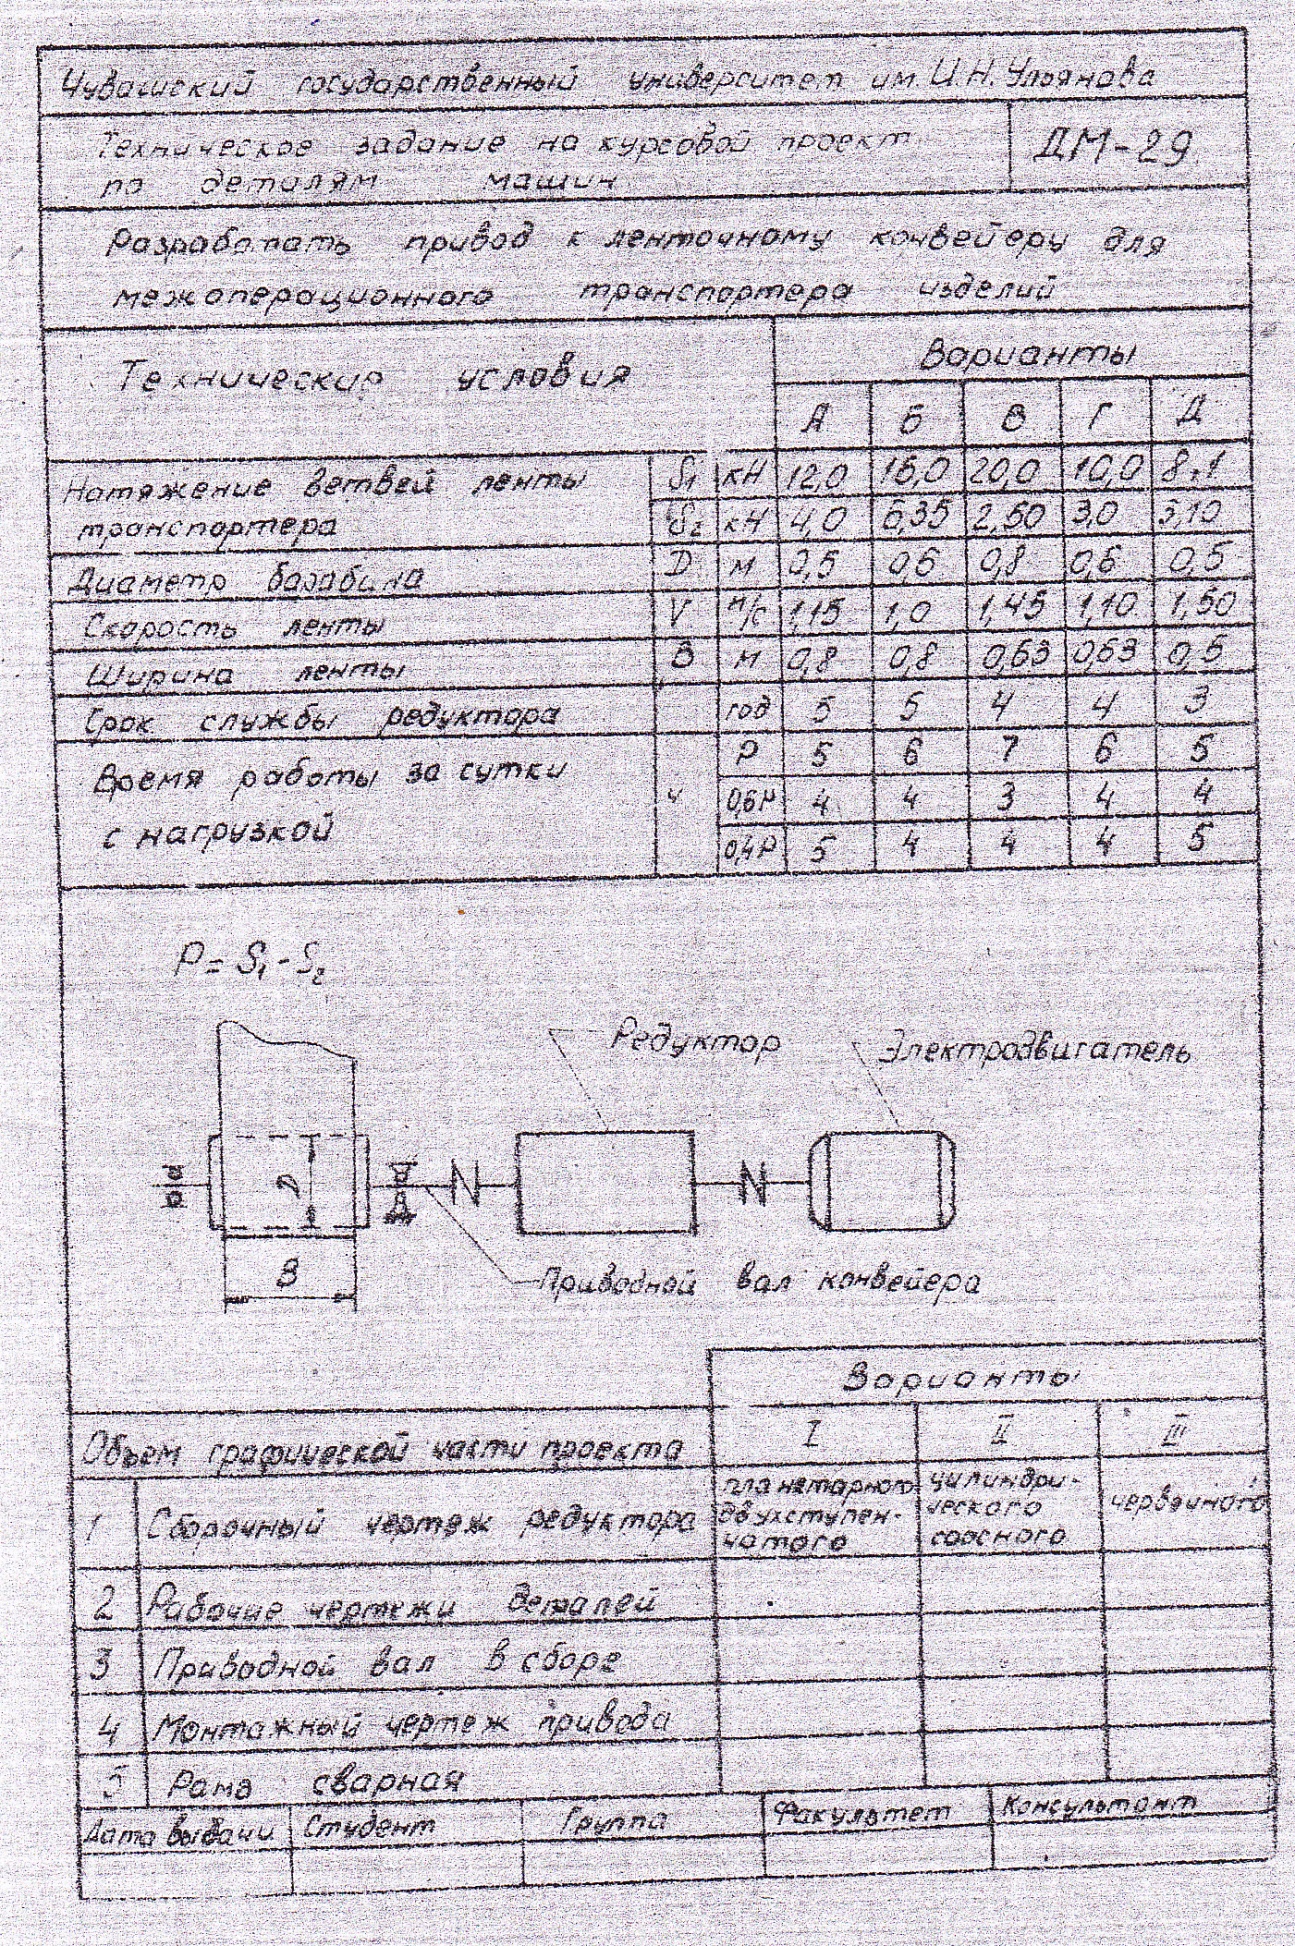 Чувашский государственный университет им. И.Н. Ульянова
Техническое задание на курсовой проект
по деталям машин
ДМ-29
Разработать привод к ленточному конвейеру для
межоперационного транспортера изделий
Технические условия
Варианты
А Б В Г Д
Натяжение ветвей ленты транспортера S1 кН 12,0 16,0 20,0 10,0 8,1
S2 кН 4,0 6,35 2,50 3,0 3,10
Диаметр барабана D м 0,5 0,6 0,8 0,6 0,5
Скорость ленты V м/с 1,15 1,0 1,45 1,10 1,50
Ширина ленты В м 0,8 0,8 0,63 0,63 0,5
Срок службы редуктора год 5 5 4 4 3
Время работы за сутки с нагрузкой ч Р 5 6 7 6 5
0,6Р 4 4 3 4 4
0,4Р 5 4 4 4 5
Р = S1 - S2
Редуктор
Электродвигатель
D
В
Приводной вал конвейера
Варианты
Объем графической части проекта I II III
1 Сборочный чертеж редуктора планетарного двухступенчатого цилиндрического соосного червячного
2 Рабочие чертежи деталей
3 Приводной вал в сборе
4 Монтажный чертеж привода
5 Рама сварная
Дата выдачи Студент Группа Факультет Консультант